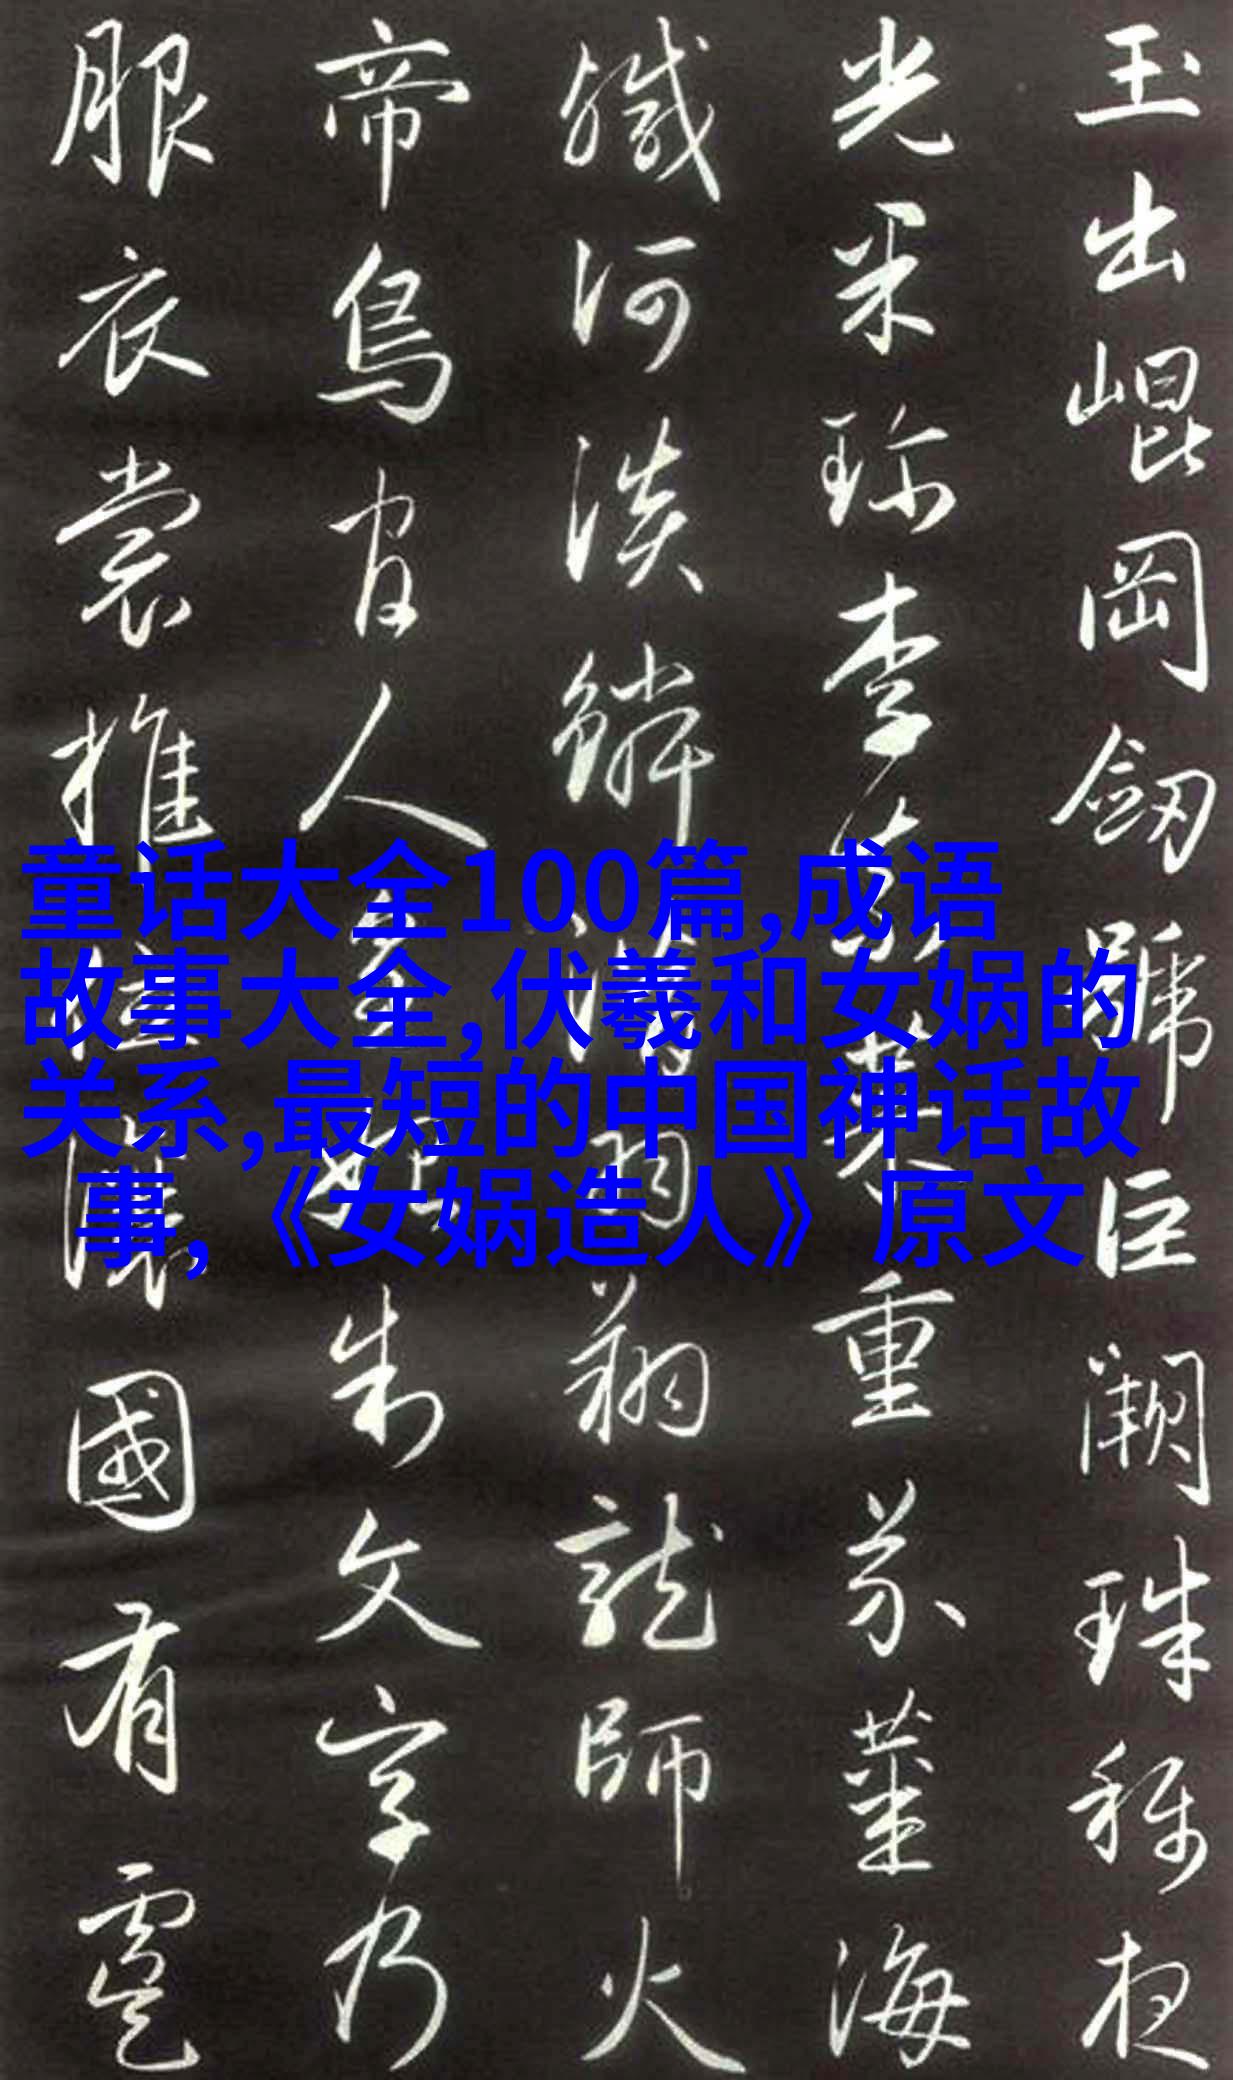 玉出崐岡劒號巨闕珠稱夜
光果珍李柰菜重芥薑海
鹹河淡鱗潛羽翔龍師火
帝鳥官人皇始制文字乃
服衣裳推位讓國有虞
童话大全100篇,成语
故事大全,伏羲和女娲的
关系,最短的中国神话故
事,《女娲造人》原文